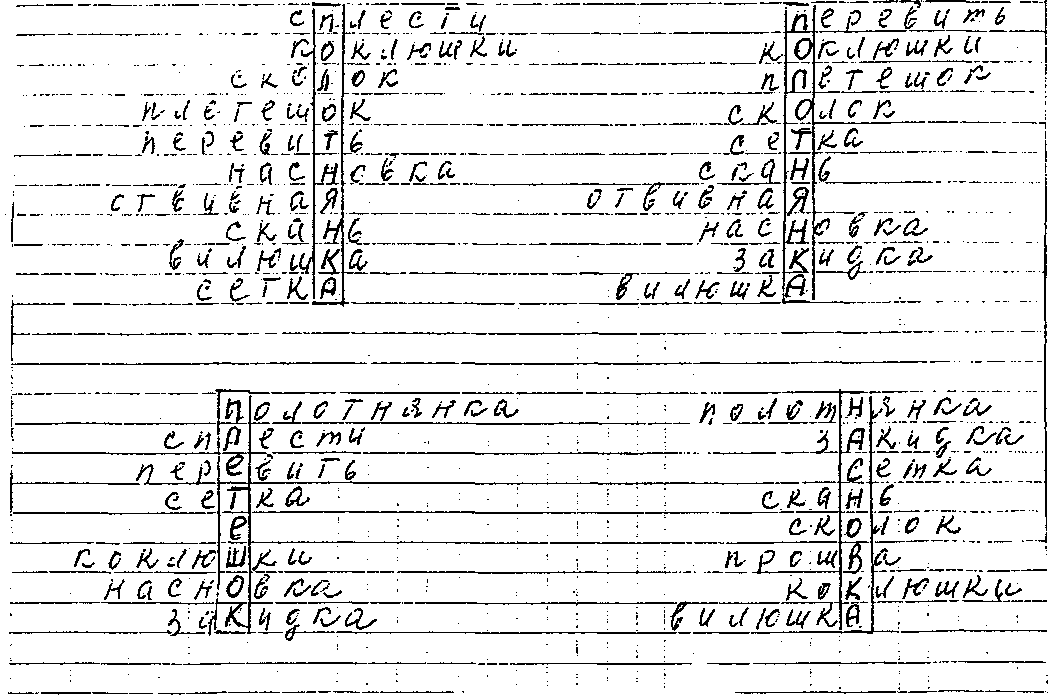 сплести
коклюшки
сколок
плетешок
перевить
насновка
ствивная
скань
вилюшка
сетка
перевить
коклюшки
плетешок
сколок
сетка
скань
отвивная
насновка
закидка
вилюшка
полотнянка
сплести
перевить
сетка
е
коклюшки
насновка
закидка
полотнянка
закидка
сетка
скань
сколок
прошва
коклюшки
вилюшка